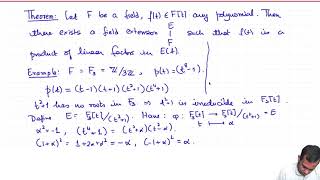 Theorem: Let F be a field, f(t) ∈ F[t] any polynomial. Then
there exists a field extension E | F such that f(t) is a
product of linear factors in E[t].
Example: F = F₃ = ℤ/3ℤ, p(t) = (t⁸-1)
p(t) = (t-1)(t+1)(t²+1)(t⁴+1)
t²+1 has no roots in F₃ ⇒ t²+1 is irreducible in F₃[t]
Define E = F₃[t]/(t²+1). Have: φ: F₃[t] → F₃[t]/(t²+1) = E
t ↦ α
α² = -1, (t⁴+1) = (t²+α)(t²-α)
(1+α)² = 1+2α+α² = -α, (-1+α)² = α.